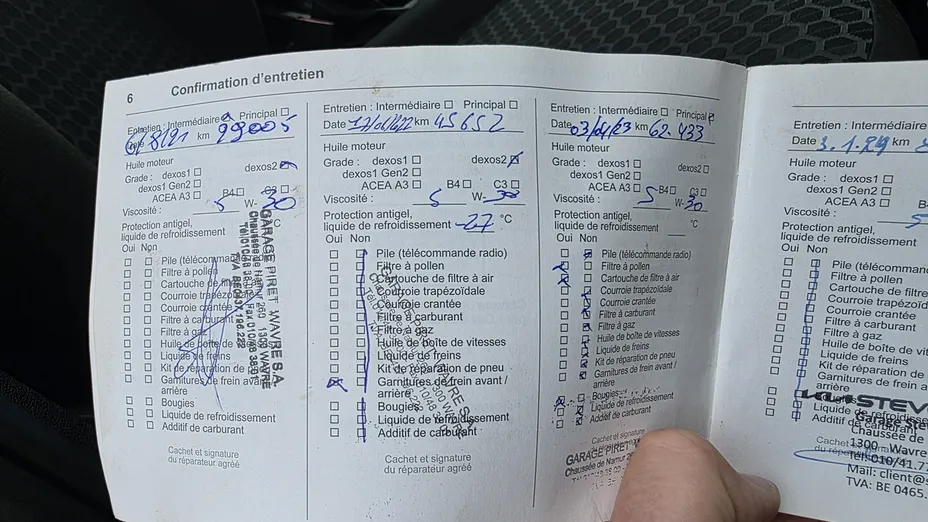 6 Confirmation d'entretien
Entretien : Intermédiaire Principal
6/8/21 km 29005
Huile moteur
Grade : dexos1 dexos2
dexos1 Gen2
ACEA A3 B4 C3
Viscosité : 5 W-30
Protection antigel,
liquide de refroidissement °C
Oui Non
Pile (télécommande
Filtre à pollen
Cartouche de
Courroie trapézo
Courroie crantée
Filtre à carburant
Filtre à gaz
Huile de boîte de
Liquide de freins
Kit de réparation de pneu
Garnitures de frein avant /
arrière
Bougies
Liquide de refroidissement
Additif de carburant
Cachet et signature
du réparateur agréé
GARAGE PIRET WAVRE S.A.
Chaussée de Namur 260 1300 WAVRE
Entretien : Intermédiaire Principal
Date 17/06/22 km 45652
Huile moteur
Grade : dexos1 dexos2
dexos1 Gen2
ACEA A3 B4 C3
Viscosité : 5 W-30
Protection antigel,
liquide de refroidissement -27 °C
Oui Non
Pile (télécommande radio)
Filtre à pollen
Cartouche de filtre à air
Courroie trapézoïdale
Courroie crantée
Filtre à carburant
Filtre à gaz
Huile de boîte de vitesses
Liquide de freins
Kit de réparation de pneu
Garnitures de frein avant /
arrière
Bougies
Liquide de refroidissement
Additif de carburant
Cachet et signature
du réparateur agréé
Entretien : Intermédiaire Principal
Date 03/04/23 km 62.433
Huile moteur
Grade : dexos1 dexos2
dexos1 Gen2
ACEA A3 B4 C3
Viscosité : 5 W-30
Protection antigel,
liquide de refroidissement °C
Oui Non
Pile (télécommande radio)
Filtre à pollen
Cartouche de filtre à air
Courroie trapézoïdale
Courroie crantée
Filtre à carburant
Filtre à gaz
Huile de boîte de vitesses
Liquide de freins
Kit de réparation de pneu
Garnitures de frein avant /
arrière
Bougies
Liquide de refroidissement
Additif de carburant
Cachet et signature
GARAGE PIRET
Chaussée de Namur
Entretien : Intermédiaire
Date 3.1.24 km
Huile moteur
Grade : dexos1
dexos1 Gen2
ACEA A3
Viscosité : 5
Protection antigel,
liquide de refroidissement
Oui Non
Pile (télécommand
Filtre à pollen
Cartouche de filt
Courroie trapézoïd
Courroie crantée
Filtre à carburant
Filtre à gaz
Huile de boîte de vit
Liquide de freins
Kit de réparation de
Garnitures de frein
arrière
KIA STEV
Garage Stev
Chaussée de
1300 - Wavre
Tél: 010/41.77
Mail: client@s
TVA: BE 0465.